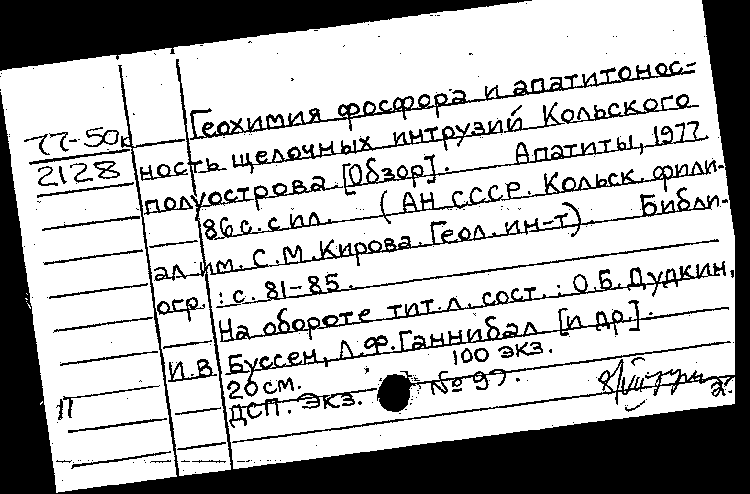 Геохимия фосфора и апатитонос=
77-50к
2128
ность щелочных интрузий Кольского
полуострова. [Обзор]. Апатиты, 1977.
86 с. с ил. (АН СССР. Кольск. фили-
ал им. С.М. Кирова. Геол. ин-т). Библи-
огр.: с. 81-85.
На обороте тит. л. сост.: О.Б. Дудкин,
И.В. Буссен, Л.Ф. Ганнибал [и др.].
20 см. 100 экз.
ДСП. Экз. № 97.